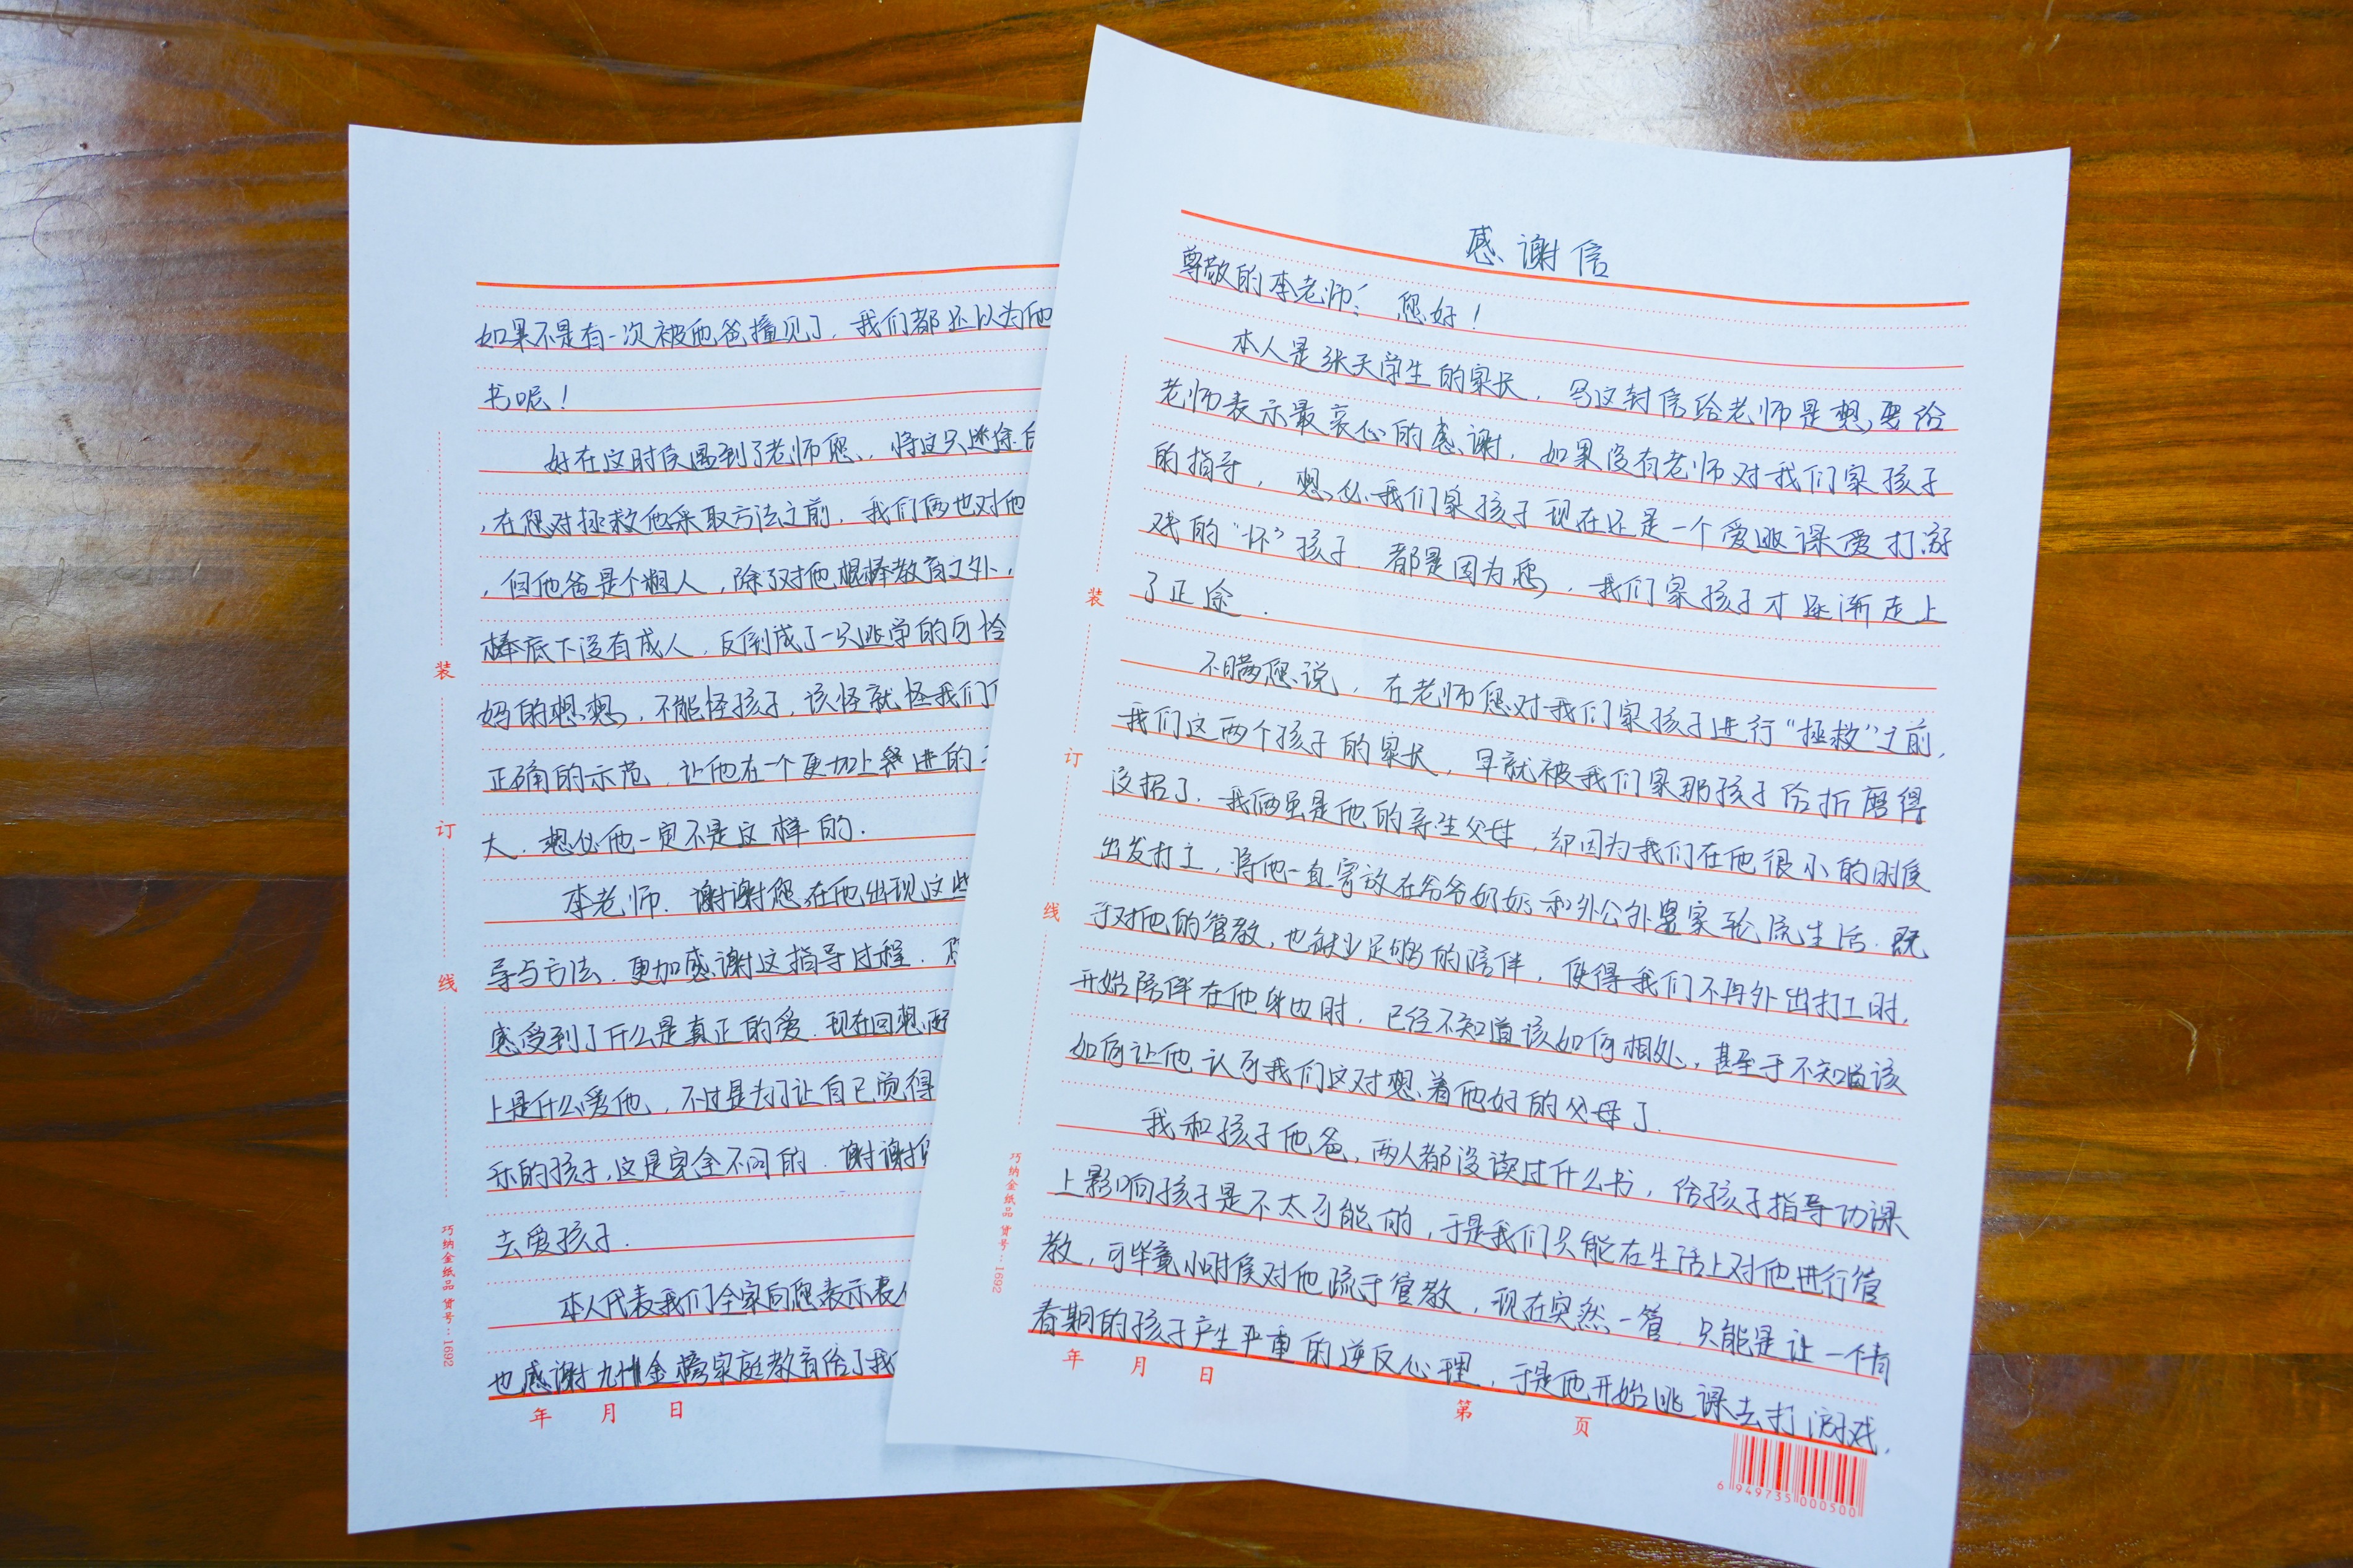 感谢信
尊敬的李老师：您好！
本人是张天学生的家长，写这封信给老师是想要给
老师表示最衷心的感谢，如果没有老师对我们家孩子
的指导，想必我们家孩子现在还是一个爱逃课爱打游
戏的“坏”孩子．都是因为您，我们家孩子才逐渐走上
了正途．
不瞒您说，在老师您对我们家孩子进行“拯救”之前，
我们这两个孩子的家长，早就被我们家那孩子给折磨得
没招了．我俩虽是他的亲生父母，却因为我们在他很小的时候
出发打工，将他一直寄放在爷爷奶奶和外公外婆家轮流生活．既
于对他的管教，也缺少足够的陪伴，使得我们不再外出打工时，
开始陪伴在他身边时，已经不知道该如何相处，甚至于不知道该
如何让他认可我们这对想着他好的父母了．
我和孩子他爸，两人都没读过什么书，给孩子指导功课
上影响孩子是不太可能的，于是我们只能在生活上对他进行管
教，可毕竟小时候对他疏于管教，现在突然一管，只能是让一个青
春期的孩子产生严重的逆反心理，于是他开始逃课去打游戏，
年 月 日
第 页
6 949735 000500
装
订
线
巧纳金纸品 货号：1692
如果不是有一次被他爸撞见了，我们都还以为他
书呢！
好在这时候遇到了老师您，将这只迷途
，在您对拯救他采取方法之前，我们俩也对他
，但他爸是个粗人，除了对他棍棒教育之外，
棒底下没有成人，反倒成了一只逃学的可怜
妈的想想，不能怪孩子，该怪就怪我们
正确的示范，让他在一个更加上进的
大，想必他一定不是这样的．
李老师，谢谢您在他出现这些
导与方法．更加感谢这指导过程．
感受到了什么是真正的爱．现在回想
上是什么爱他，不过是为了让自己觉得
乐的孩子，这是完全不同的．谢谢
去爱孩子．
本人代表我们全家向您表示衷
也感谢九州金榜家庭教育给了我
年 月 日
装
订
线
巧纳金纸品 货号：1692